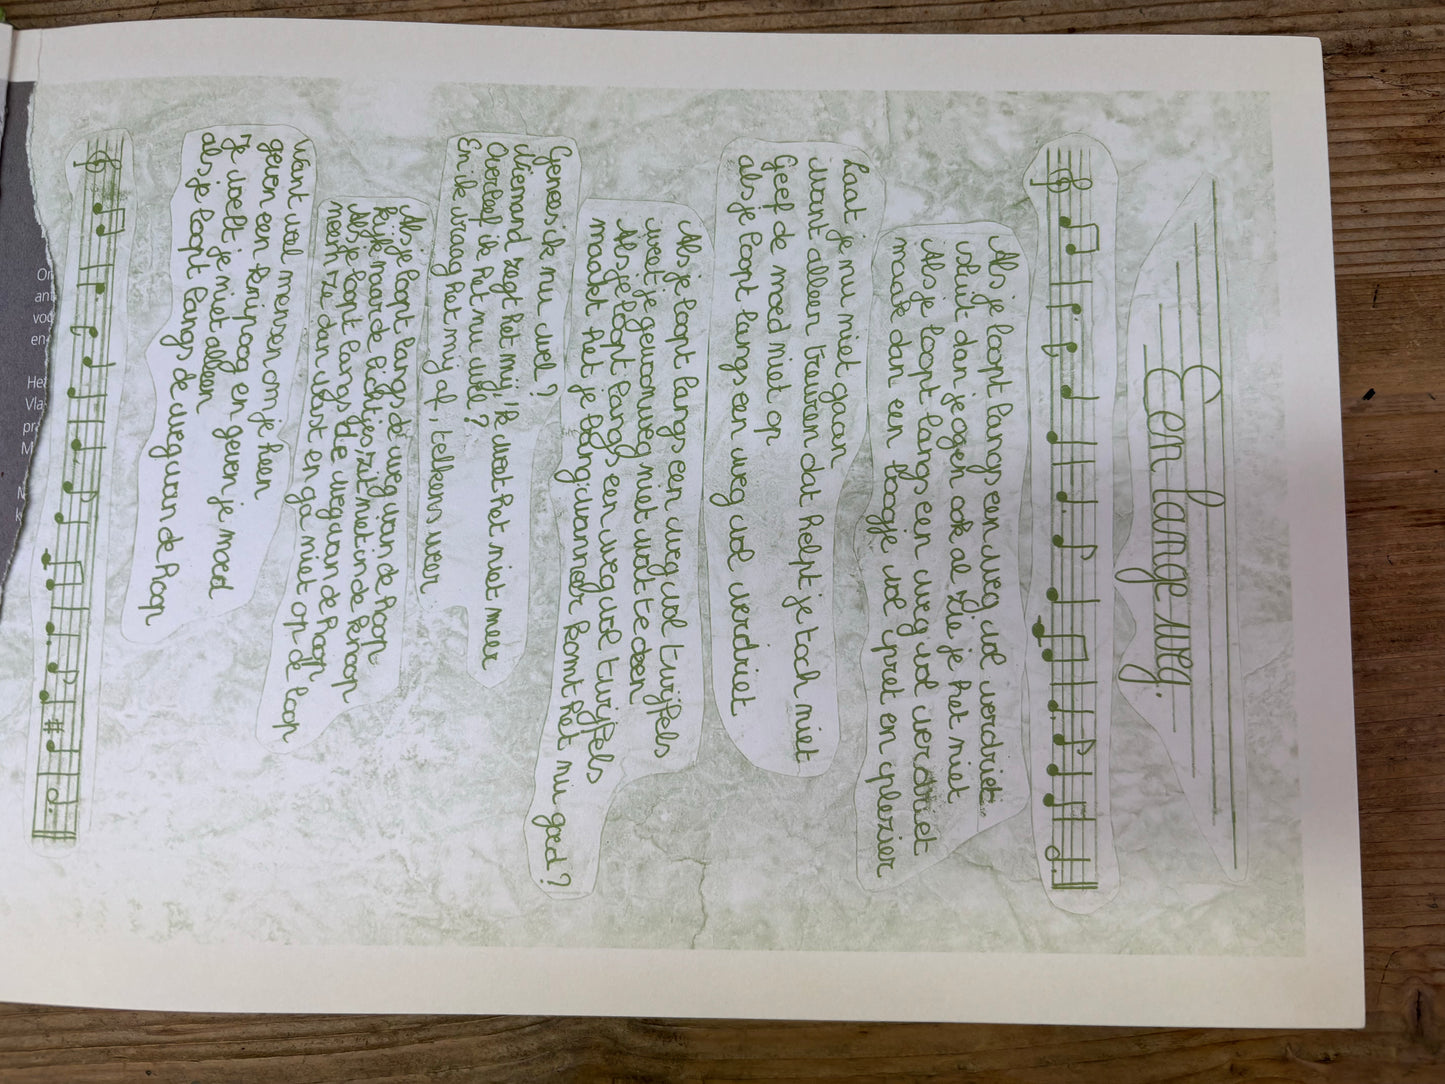 Een lange weg.
Als je loopt langs een weg vol verdriet
sluit dan je ogen ook al zie je het niet
Als je loopt langs een weg vol verdriet
maak dan een boogje vol pret en plezier
Laat je nu niet gaan
want alleen treuren dat helpt je toch niet
Geef de moed niet op
als je loopt langs een weg vol verdriet
Als je loopt langs een weg vol twijfels
weet je gewoonweg niet wat te doen
Als je loopt langs een weg vol twijfels
maakt het je bang wanneer komt het nu goed?
Genees ik nu wel?
Niemand zegt het mij, ik weet het niet meer
Overleef ik het nu wel?
En ik vraag het mij af telkens weer
Als je loopt langs de weg van de hoop
kijk naar de lichtjes, zit niet in de knoop
Als je loopt langs de weg van de hoop
neem ze dan vast en ga niet op de loop
Want veel mensen om je heen
geven een knipoog en geven je moed
Je voelt je niet alleen
als je loopt langs de weg van de hoop
On
ant
voo
en-
Het
Vla
pra
M
N
k